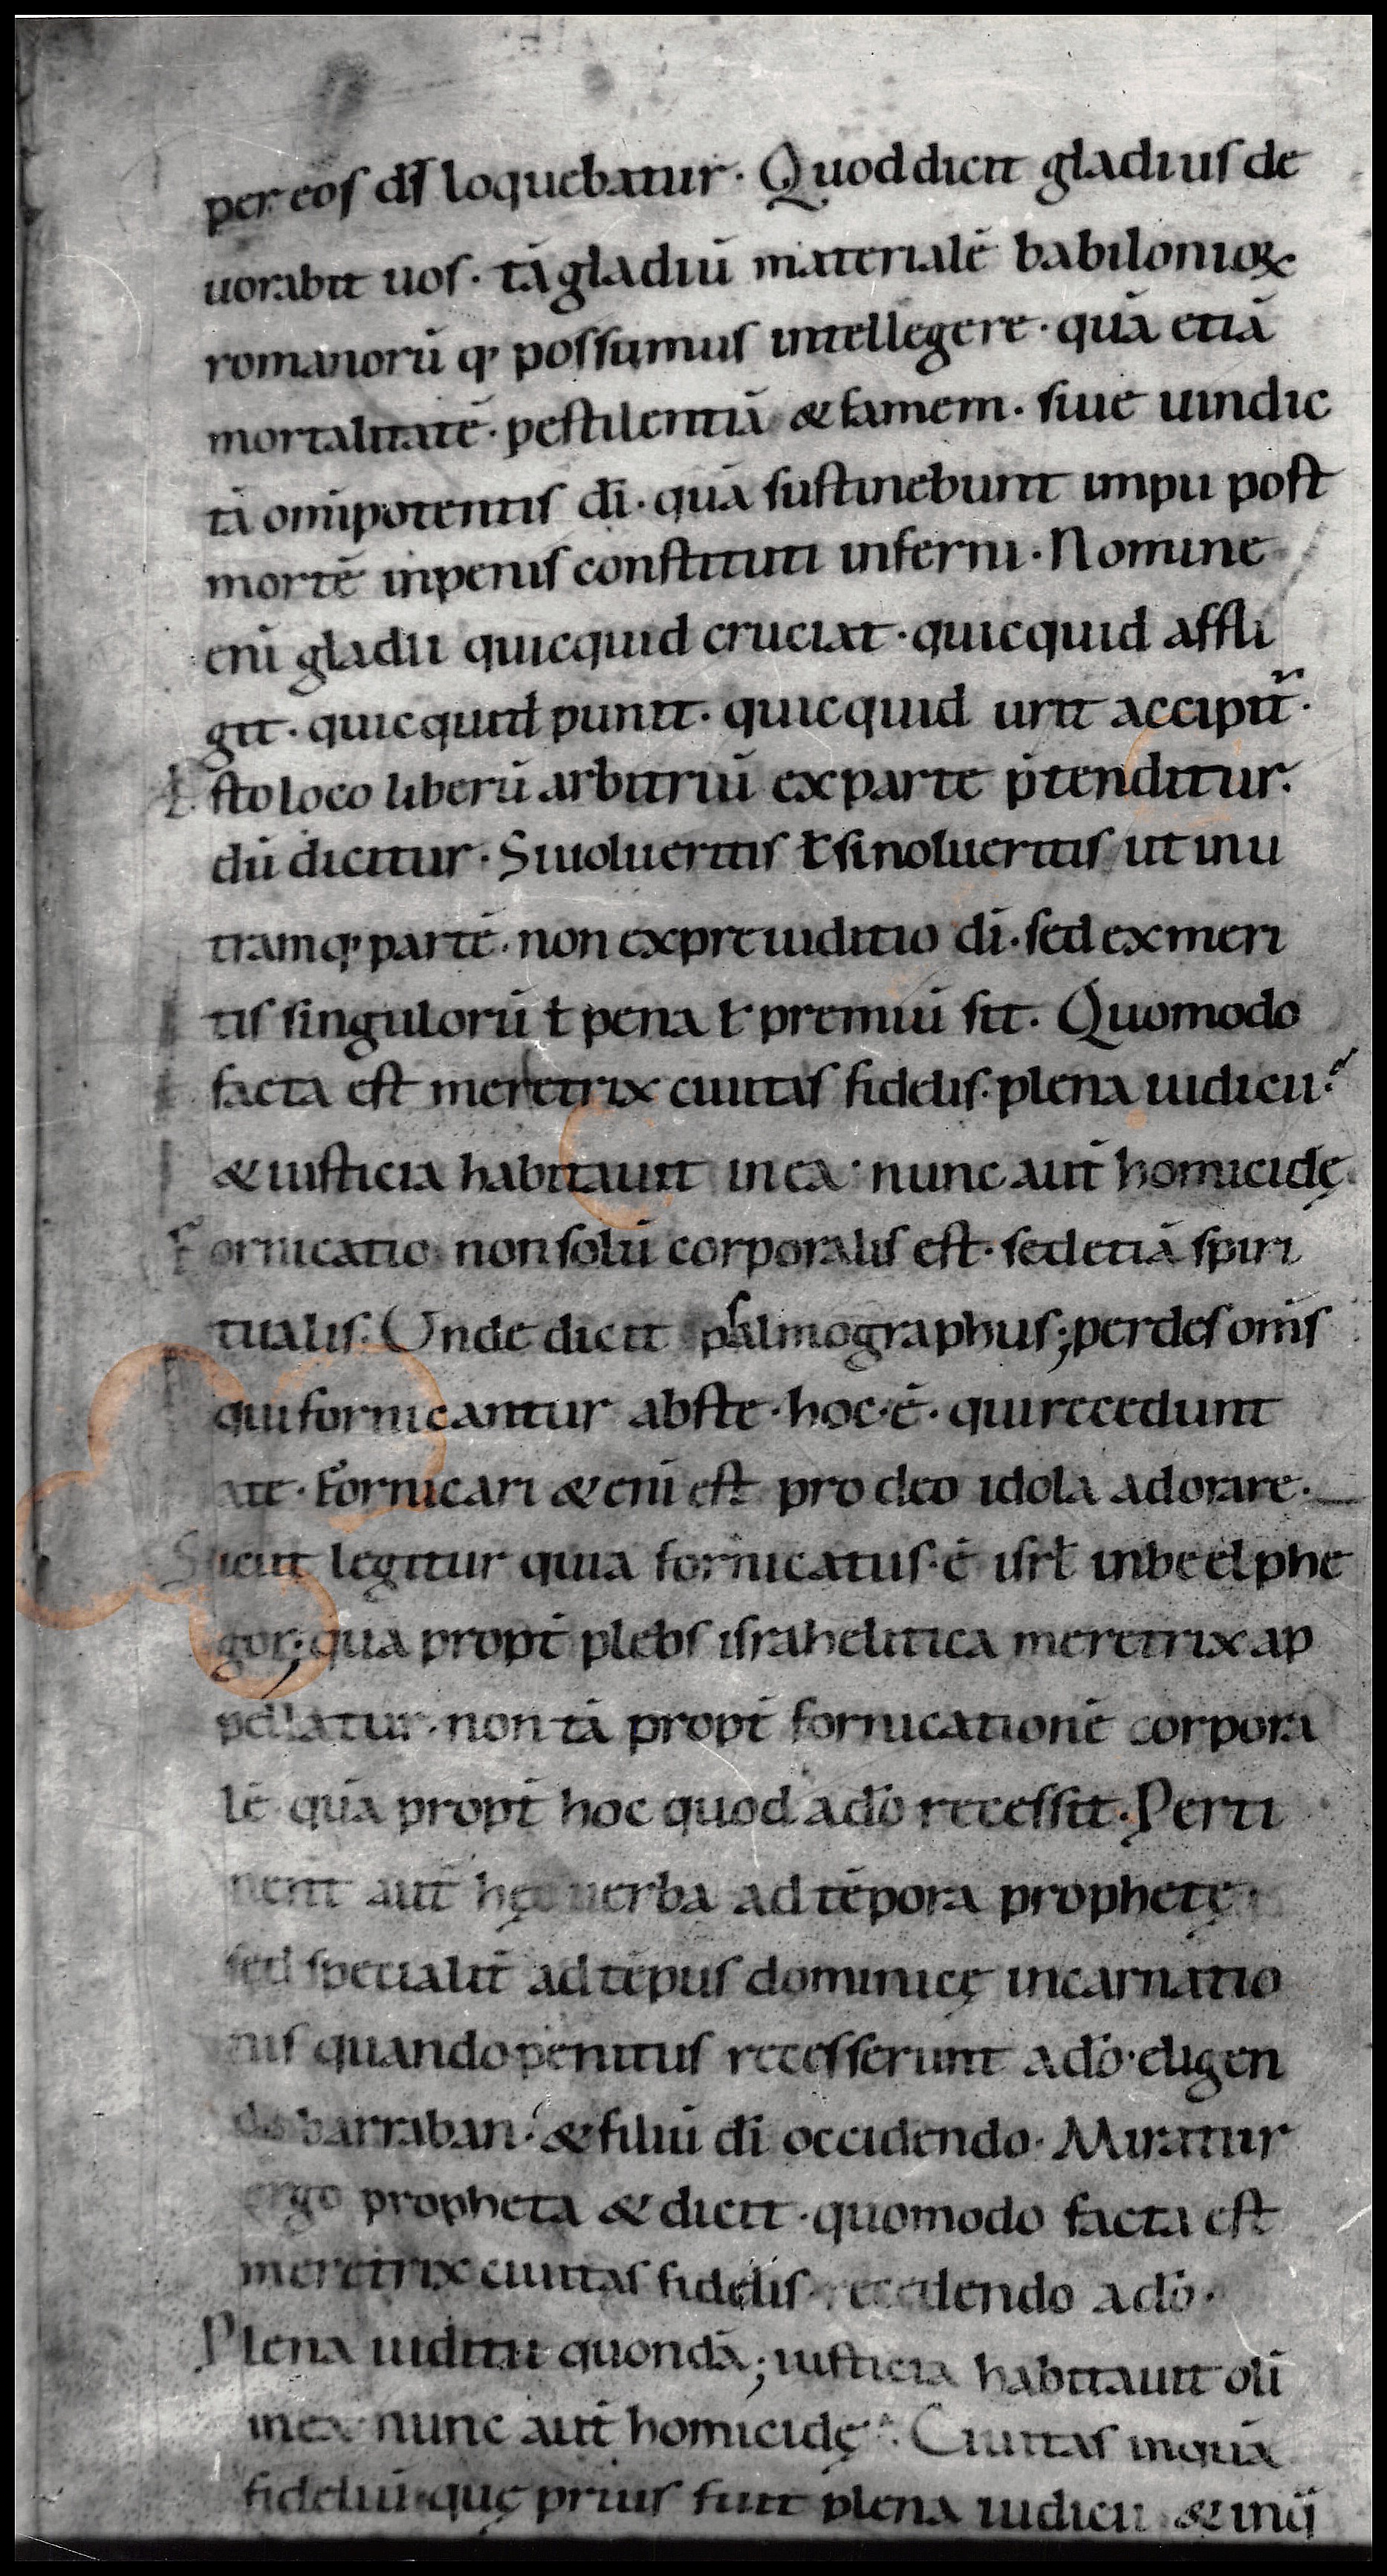 per eos ds̄ loquebatur · Quod dicit gladius de
uorabit uos · tā gladiū materialē babilonioꝝ
romanorū qꝫ possumus intellegere · quā etiā
mortalitatē · pestilentiā & famem · siue uindic
tā omīpotentis dī · quā sustinebunt impii post
mortē in penis constituti inferni · Nomine
enī gladii quicquid cruciat · quicquid affli
git · quicquid punit · quicquid urit accipit̄ ·
Isto loco liberū arbitriū ex parte p̄tenditur ·
dū dicitur · Si uolueritis ł si nolueritis ut in u
tramqꝫ partē · non ex preiuditio dī · sed ex meri
tis singulorū ł pena ł premiū sit · Quomodo
facta est meretrix ciuitas fidelis · plena iudicii ·
& iusticia habitauit in ea · nunc aut̄ homicidę ·
Fornicatio non solū corporalis est · sed etiā spiri
tualis · Unde dicit psalmographus ; perdes om̄s
qui fornicantur abs te · hoc · ē · qui recedunt
a te · Fornicari & enī est pro deo idola adorare ·
Sicut legitur quia fornicatus · ē isrł in beelphe
gor ; qua propt̄ plebs israhelitica meretrix ap
pellatur · non tā propt̄ fornicationē corpora
lē quā propt̄ hoc quod a dō recessit · Perti
nent aut̄ hęc uerba ad tēpora prophetę
sed specialit̄ ad tēpus dominicę incarnatio
nis quando penitus recesserunt a dō · eligen
do barraban · & filiū dī occidendo · Miratur
ergo propheta & dicit · quomodo facta est
meretrix ciuitas fidelis recedendo a dō ·
Plena iuditii quondā ; iusticia habitauit oli
in ea · nunc aut̄ homicidę · Ciuitas inquā
fideliū · quę prius fuit plena iudicii & in q̄